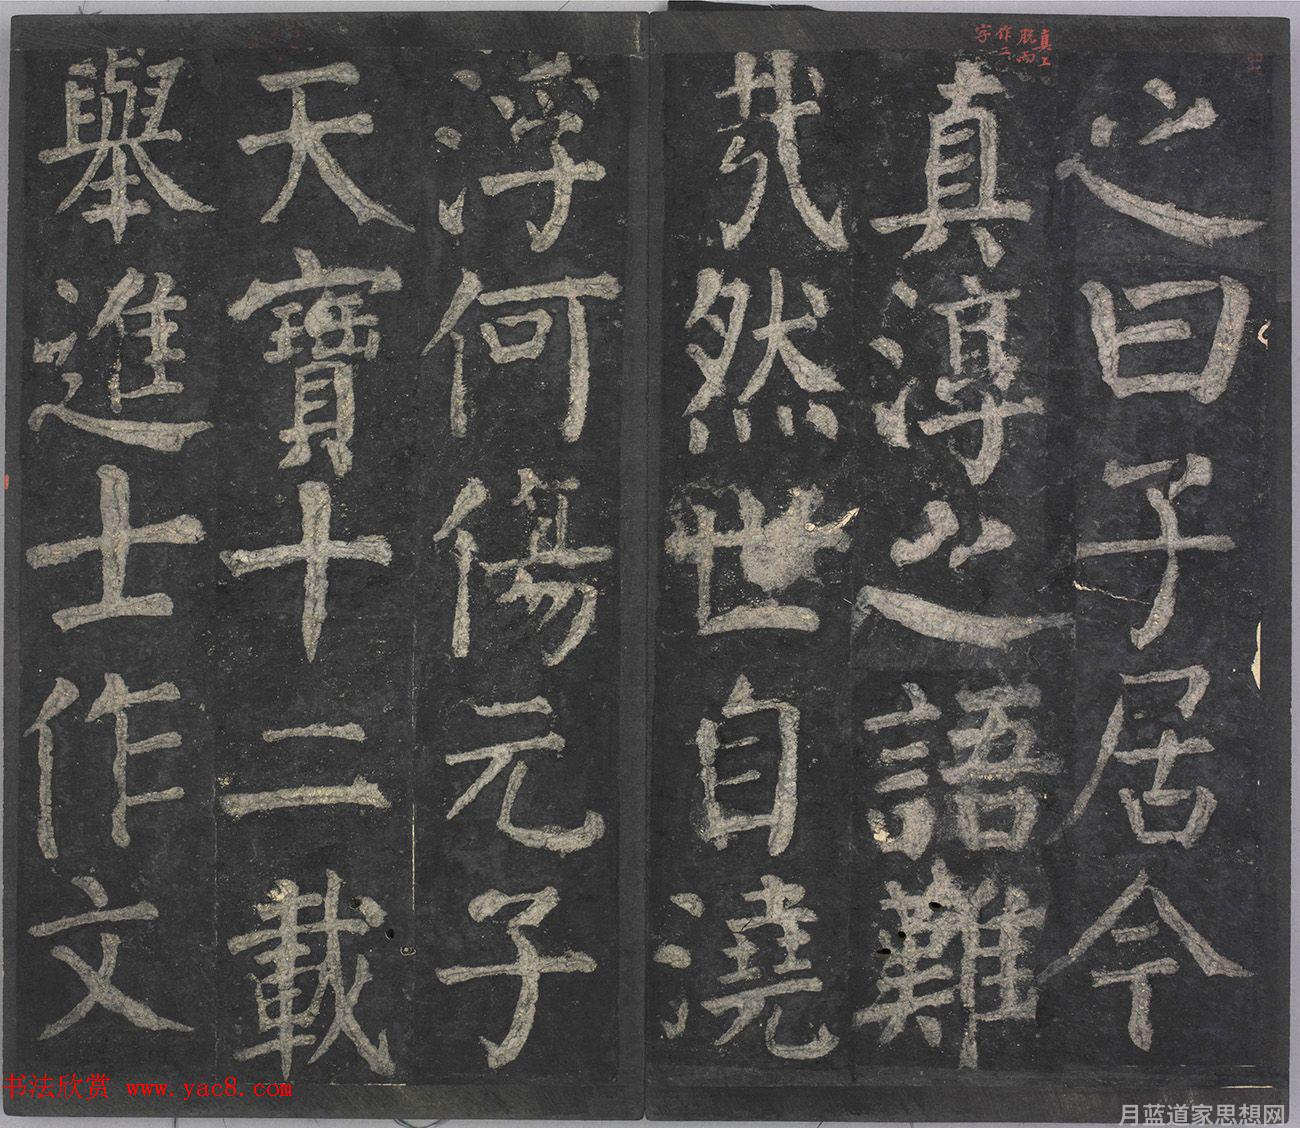 之曰子居今
真淳之語難
㢤然世自澆
浮何傷元子
天寶十二載
舉進士作文
真上
脫而
作二
字
书法欣赏 www.yac8.com
月蓝道家思想网